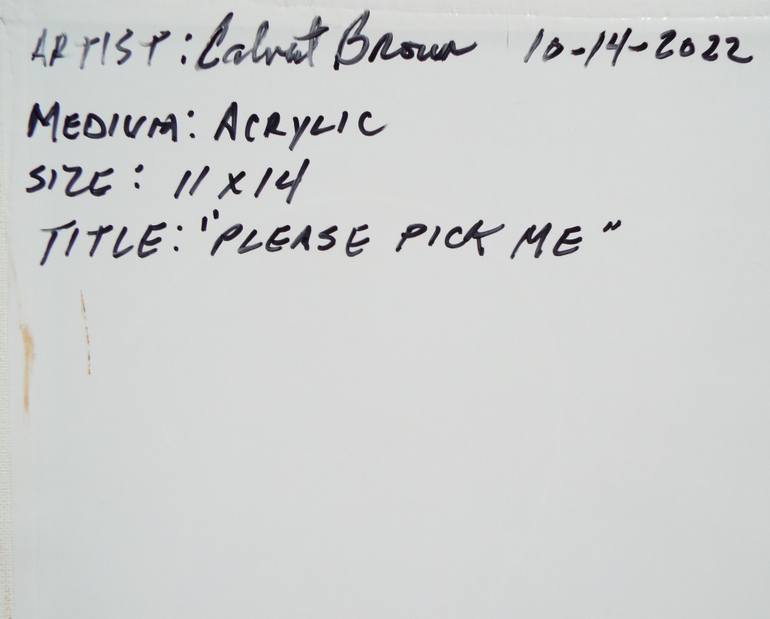 ARTIST: Calvert Brown 10-14-2022
MEDIUM: ACRYLIC
SIZE: 11 x 14
TITLE: "PLEASE PICK ME"